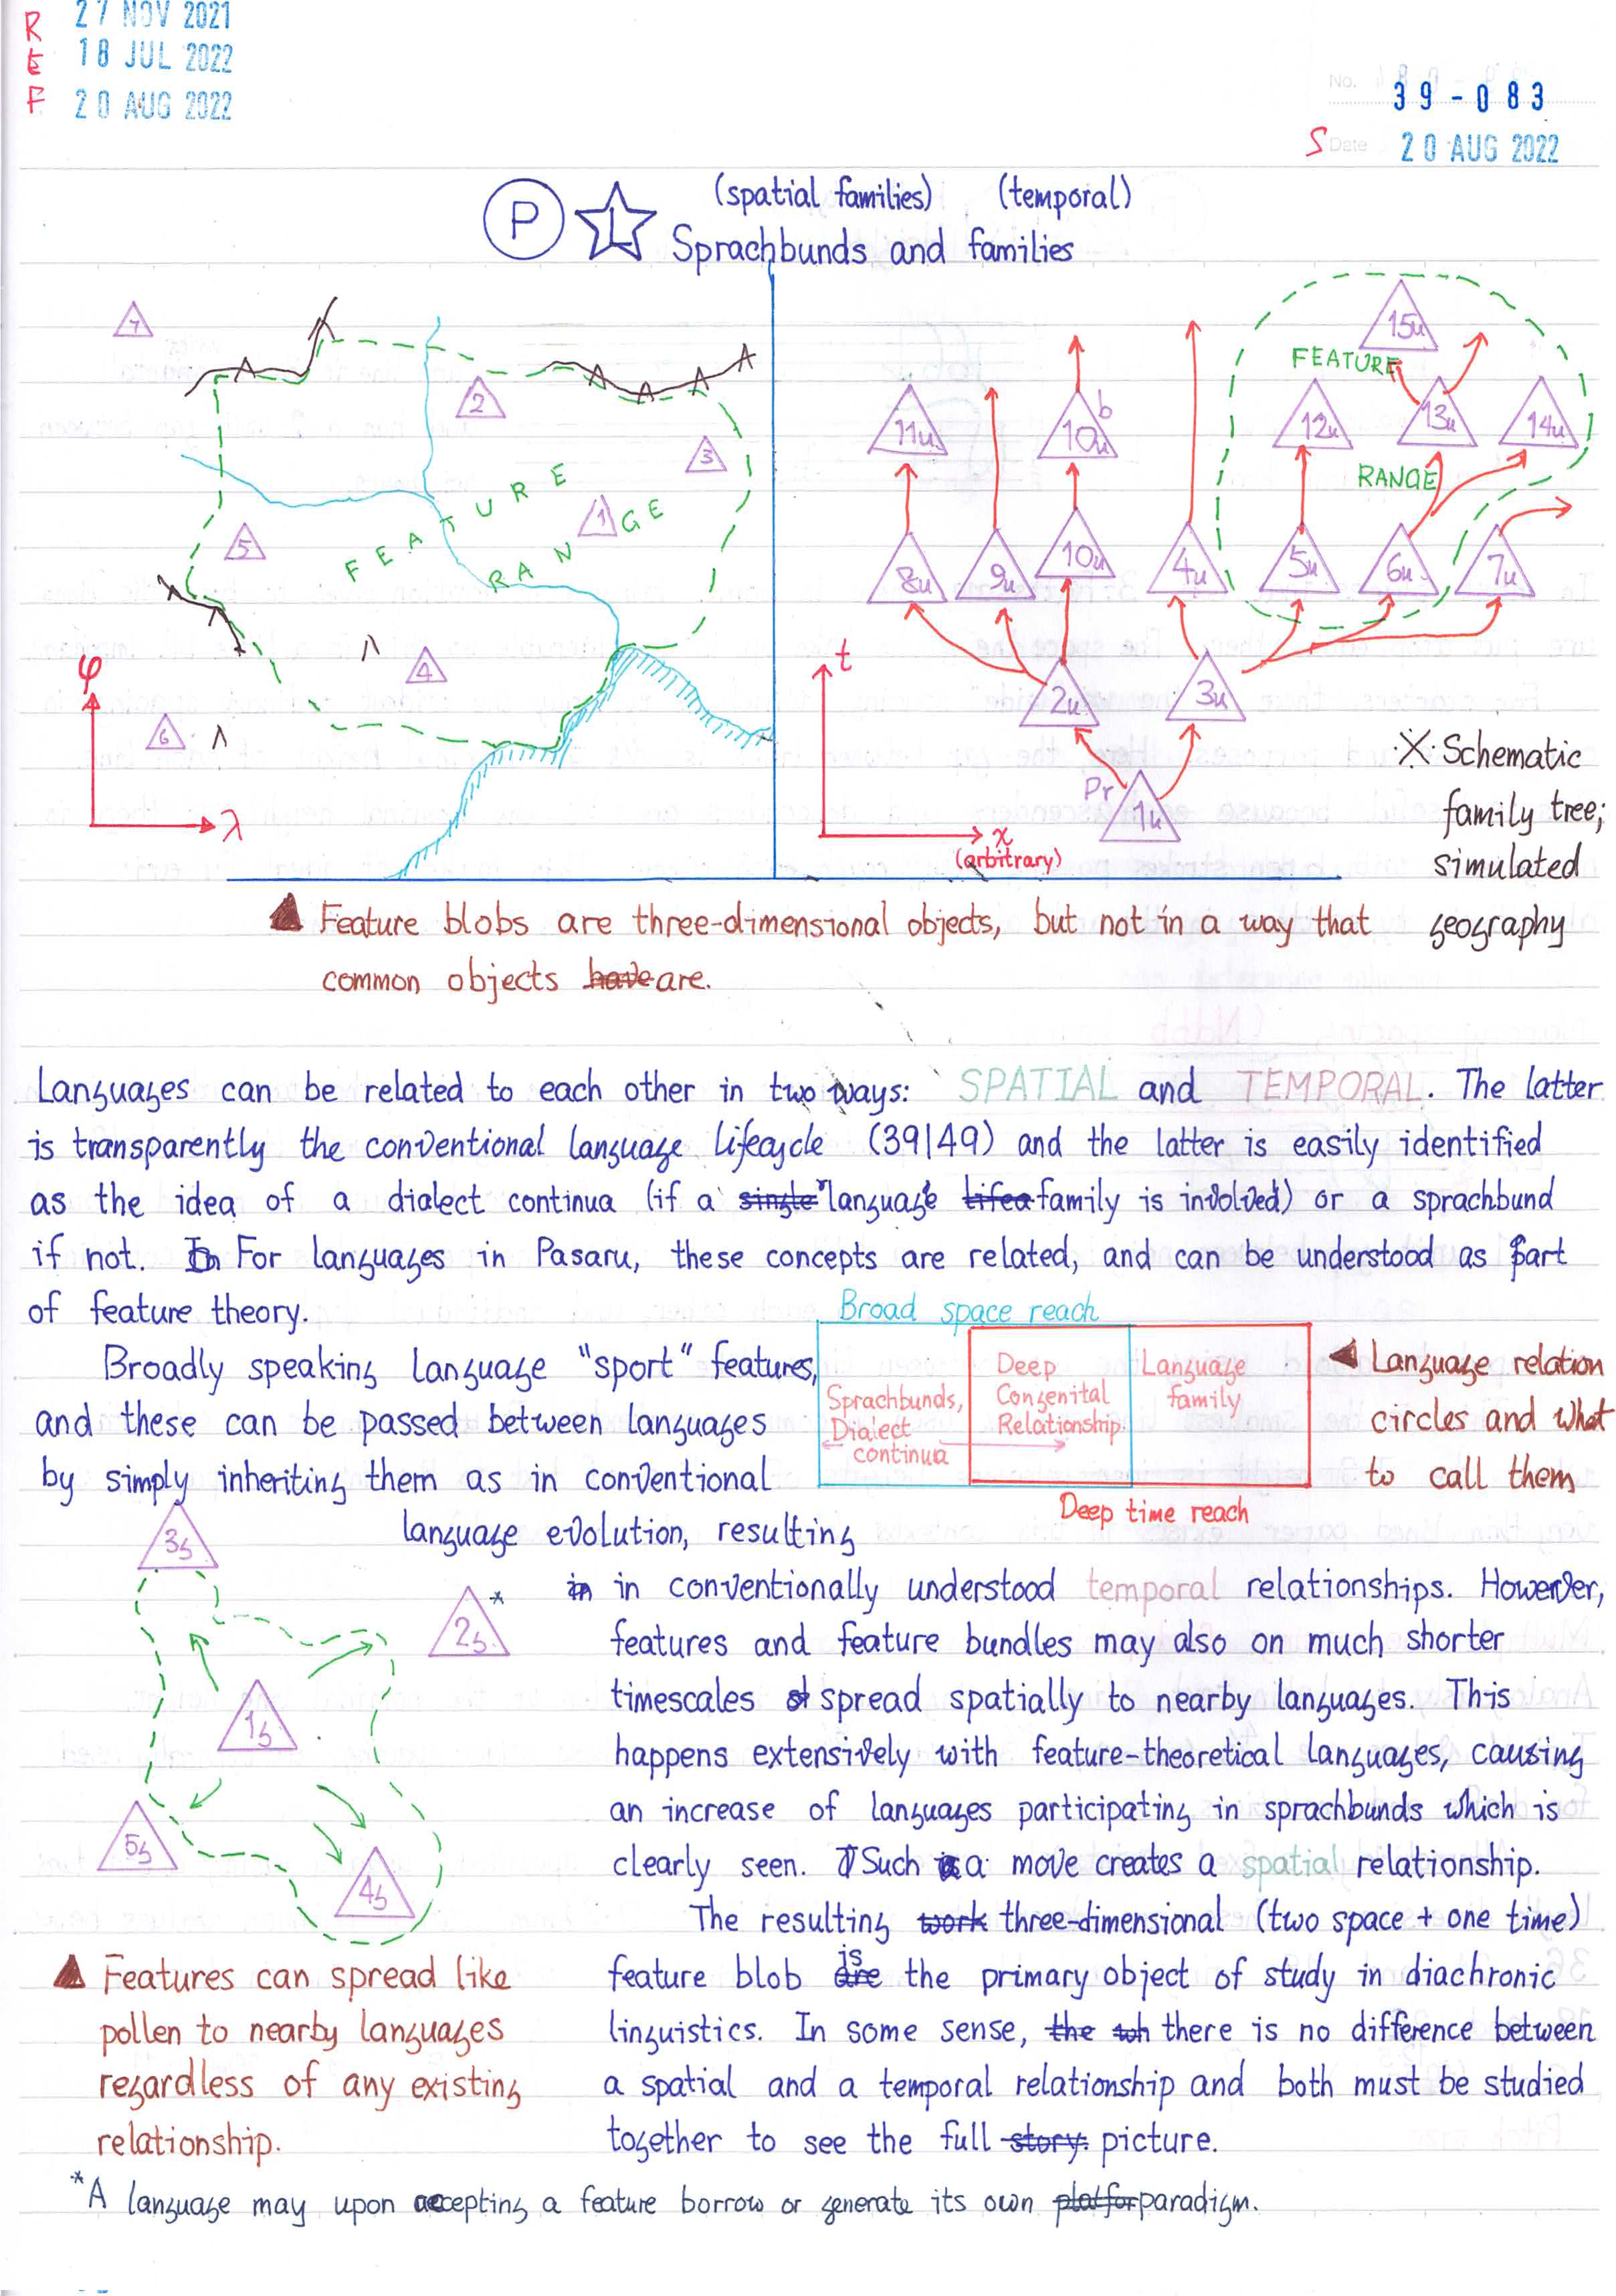 R 27 NOV 2021
E 18 JUL 2022
F 20 AUG 2022
No.
39-083
S Date 20 AUG 2022
(spatial families) (temporal)
P L Sprachbunds and families
7
2
3
1
5
4
6
FEATURE
RANGE
φ
λ
15u
FEATURE
11u
10u b
12u
13u
14u
RANGE
8u
9u
10u
4u
5u
6u
7u
t
2u
3u
Pr 1u
x
(arbitrary)
※ Schematic
family tree;
simulated
geography
▲ Feature blobs are three-dimensional objects, but not in a way that
common objects have are.
Languages can be related to each other in two ways: SPATIAL and TEMPORAL. The latter
is transparently the conventional language lifecycle (39|49) and the latter is easily identified
as the idea of a dialect continua (if a single language lifea family is involved) or a sprachbund
if not. In For languages in Pasaru, these concepts are related, and can be understood as part
of feature theory.
Broad space reach
Broadly speaking language "sport" features,
and these can be passed between languages
by simply inheriting them as in conventional
language evolution, resulting
Sprachbunds,
Dialect
continua
Deep
Congenital
Relationship
Language
family
Deep time reach
◀ Language relation
circles and what
to call them
in in conventionally understood temporal relationships. However,
features and feature bundles may also on much shorter
timescales st spread spatially to nearby languages. This
happens extensively with feature-theoretical languages, causing
an increase of languages participating in sprachbunds which is
clearly seen. Such a move creates a spatial relationship.
The resulting work three-dimensional (two space + one time)
feature blob are is the primary object of study in diachronic
linguistics. In some sense, the there is no difference between
a spatial and a temporal relationship and both must be studied
together to see the full story. picture.
3s
2s *
1s
5s
4s
▲ Features can spread like
pollen to nearby languages
regardless of any existing
relationship.
*A language may upon accepting a feature borrow or generate its own platfor paradigm.